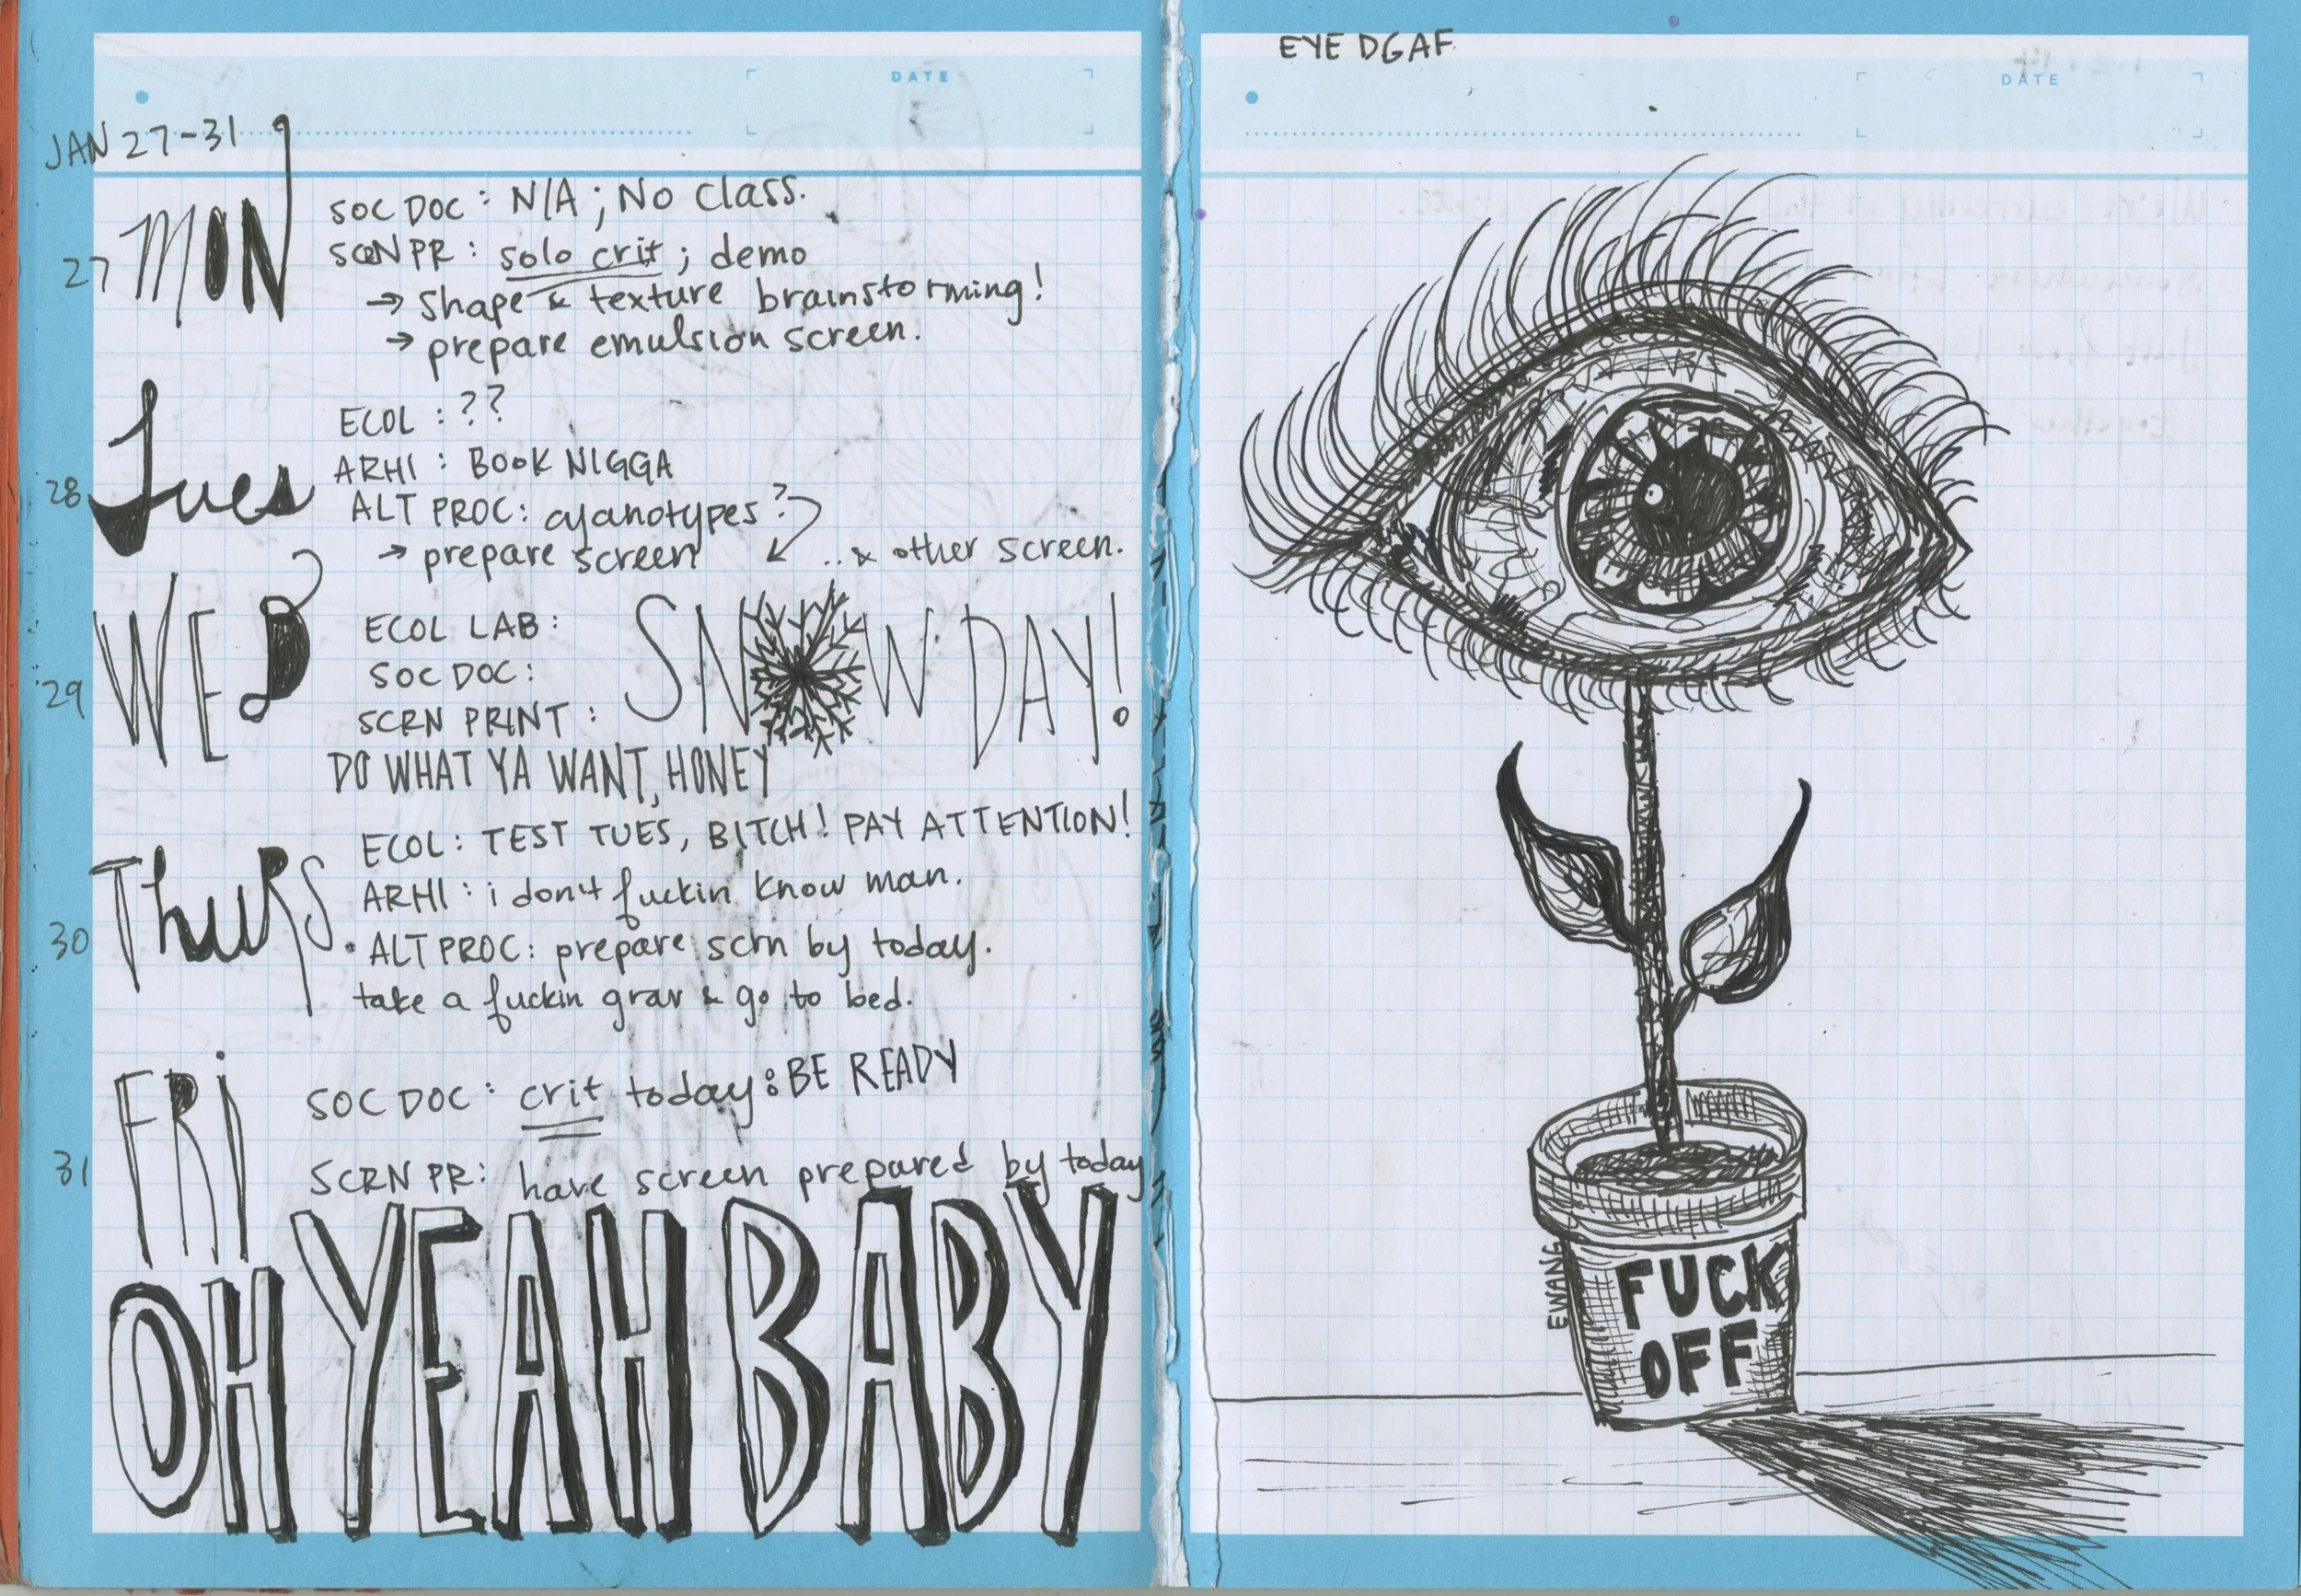 JAN 27-31
27 MON
SOC DOC: N/A; No class.
SCRN PR: solo crit; demo
→ shape & texture brainstorming!
→ prepare emulsion screen.
28 Tues
ECOL: ??
ARHI: BOOK NIGGA
ALT PROC: cyanotypes?
→ prepare screen ...& other screen.
29 WED
ECOL LAB:
SOC DOC:
SCRN PRINT:
SNOW DAY!
DO WHAT YA WANT, HONEY
30 Thurs.
ECOL: TEST TUES, BITCH! PAY ATTENTION!
ARHI: i don't fuckin know man.
ALT PROC: prepare scrn by today.
take a fuckin grav & go to bed.
31 FRi
SOC DOC: crit today: BE READY
SCRN PR: have screen prepared by today
OH YEAH BABY
DATE
EYE DGAF
DATE
EWANG
FUCK
OFF